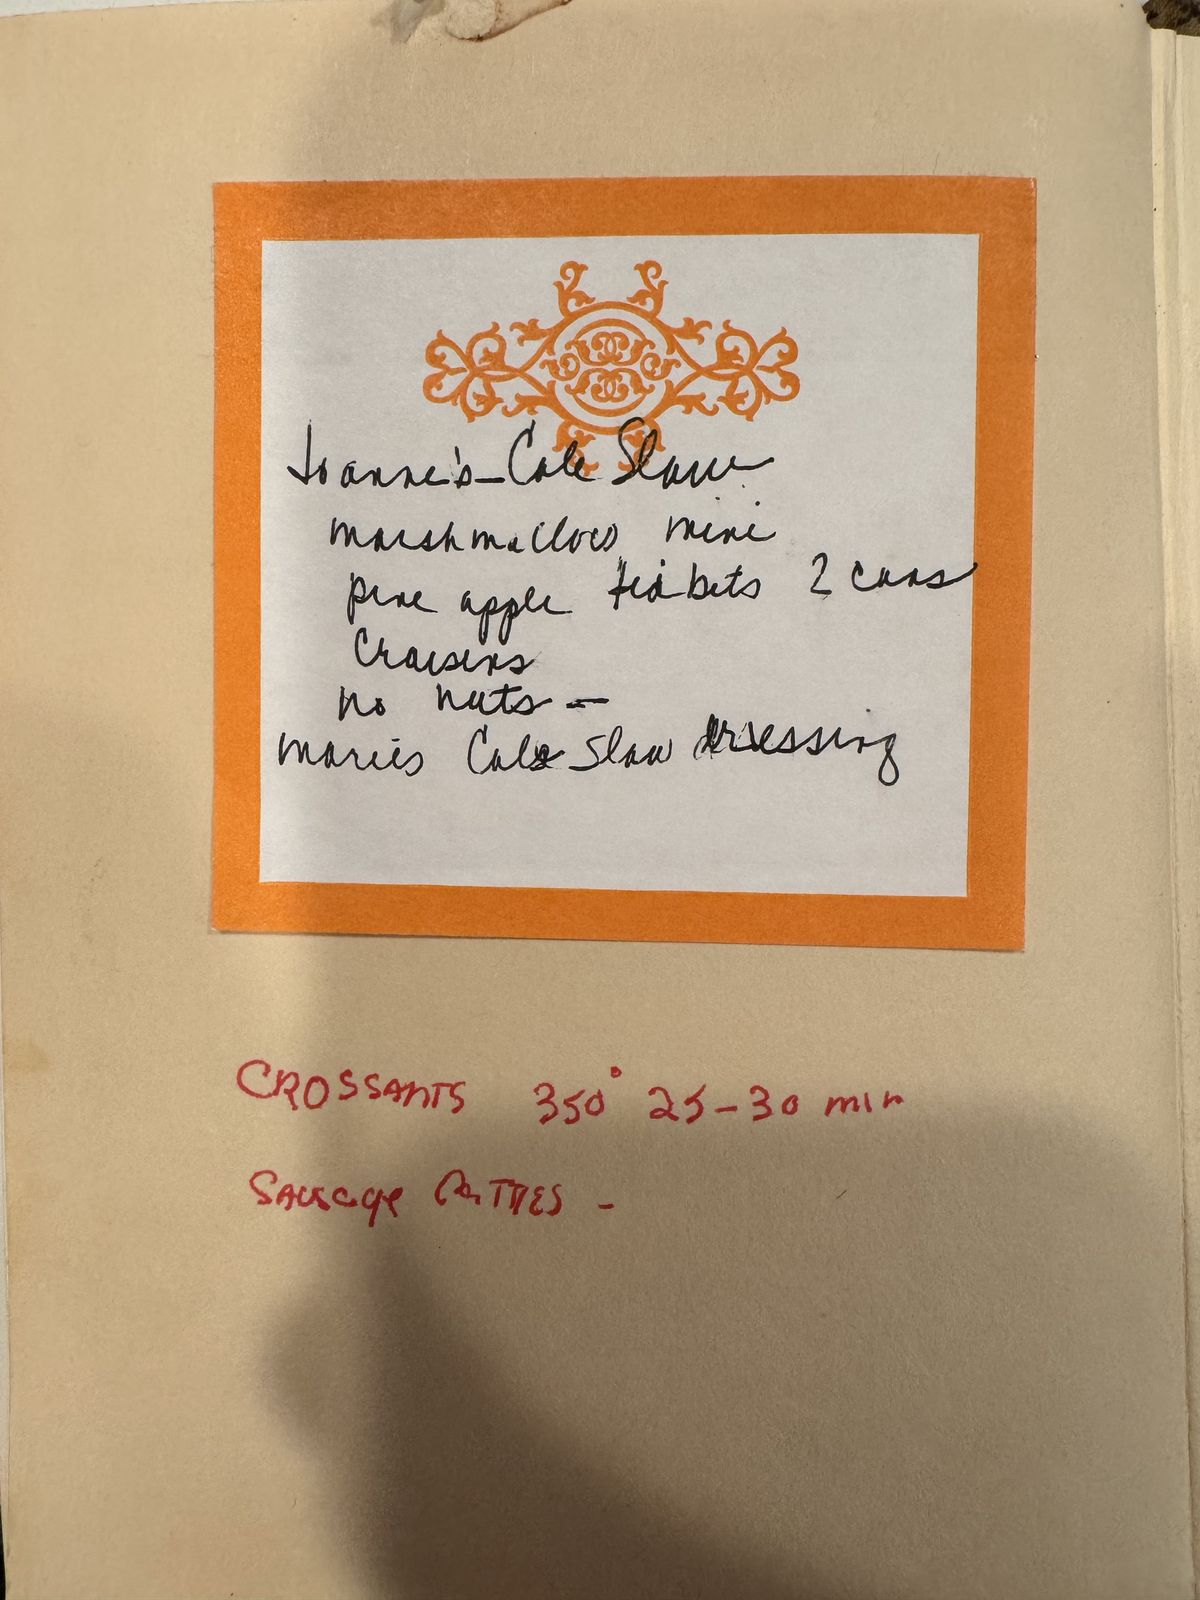 Joanne's - Cole Slaw
marshmallows mini
pine apple tidbets 2 cans
Craisens
no nuts -
Maries Cole Slaw dressing
CROSSANTS 350° 25-30 min
SAUSAge PATTIES -